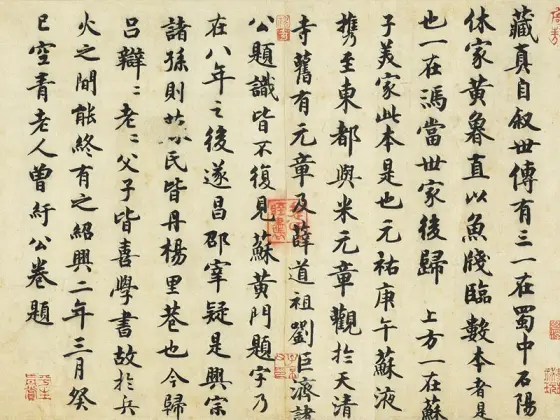 藏真自叙世傳有三一在蜀中石陽
休家黃魯直以魚牋臨數本者是
也一在馮當世家後歸 上方一在蘇
子美家此本是也元祐庚午蘇液
攜至東都與米元章觀於天清
寺舊有元章及薛道祖劉巨濟諸
公題識皆不復見蘇黃門題字乃
在八年之後遂昌邵宰疑是興宗
諸孫則民皆丹楊里巷也今歸
呂辯〻老〻父子皆喜學書故於兵
火之間能終有之紹興二年三月癸
巳空青老人曾紆公卷題